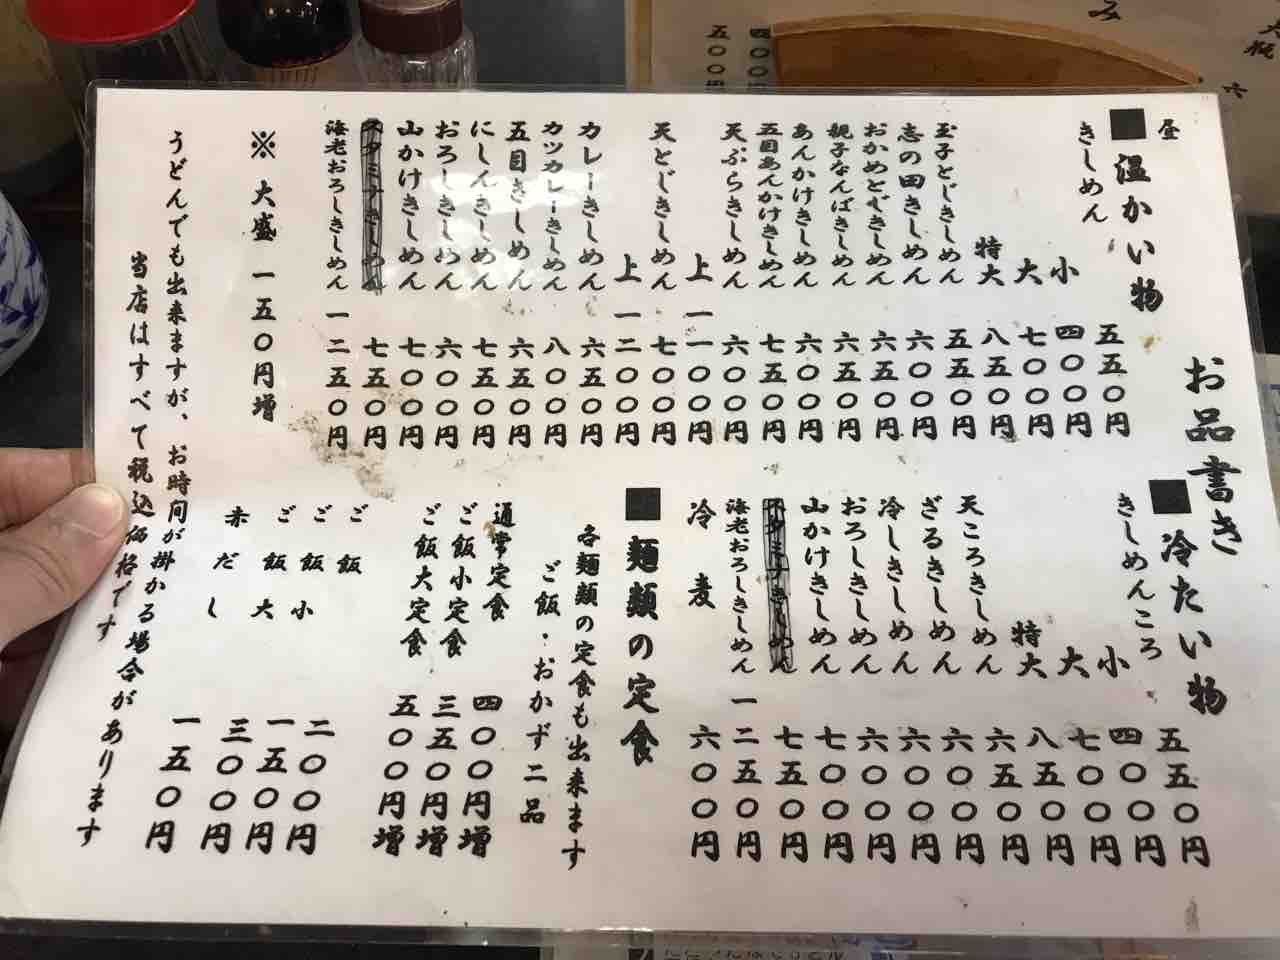 お品書き
昼
■温かい物
きしめん 五五〇円
小 四〇〇円
大 七〇〇円
特大 八五〇円
玉子とじきしめん 五五〇円
志の田きしめん 六〇〇円
おかめとじきしめん 六五〇円
親子なんばきしめん 六五〇円
あんかけきしめん 六〇〇円
五目あんかけきしめん 七五〇円
天ぷらきしめん 六〇〇円
上 一一〇〇円
天とじきしめん 七〇〇円
上 一二〇〇円
カレーきしめん 六五〇円
カツカレーきしめん 八〇〇円
五目きしめん 六五〇円
にしんきしめん 七五〇円
おろしきしめん 六〇〇円
山かけきしめん 七〇〇円
スタミナきしめん 七五〇円
海老おろしきしめん 一二五〇円
※大盛一五〇円増
■冷たい物
きしめんころ 五五〇円
小 四〇〇円
大 七〇〇円
特大 八五〇円
天ころきしめん 六五〇円
ざるきしめん 六〇〇円
冷しきしめん 六〇〇円
おろしきしめん 六〇〇円
山かけきしめん 七〇〇円
スタミナきしめん 七五〇円
海老おろしきしめん 一二五〇円
冷麦 六〇〇円
■麺類の定食
各麺類の定食も出来ます
ご飯・おかず二品
通常定食 四〇〇円増
ご飯小定食 三五〇円増
ご飯大定食 五〇〇円増
ご飯 二〇〇円
ご飯小 一五〇円
ご飯大 三〇〇円
赤だし 一五〇円
うどんでも出来ますが、お時間が掛かる場合があります
当店はすべて税込価格です